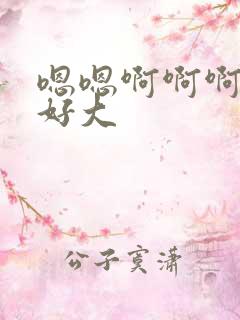 嗯嗯啊啊啊
好大
公子寞潇